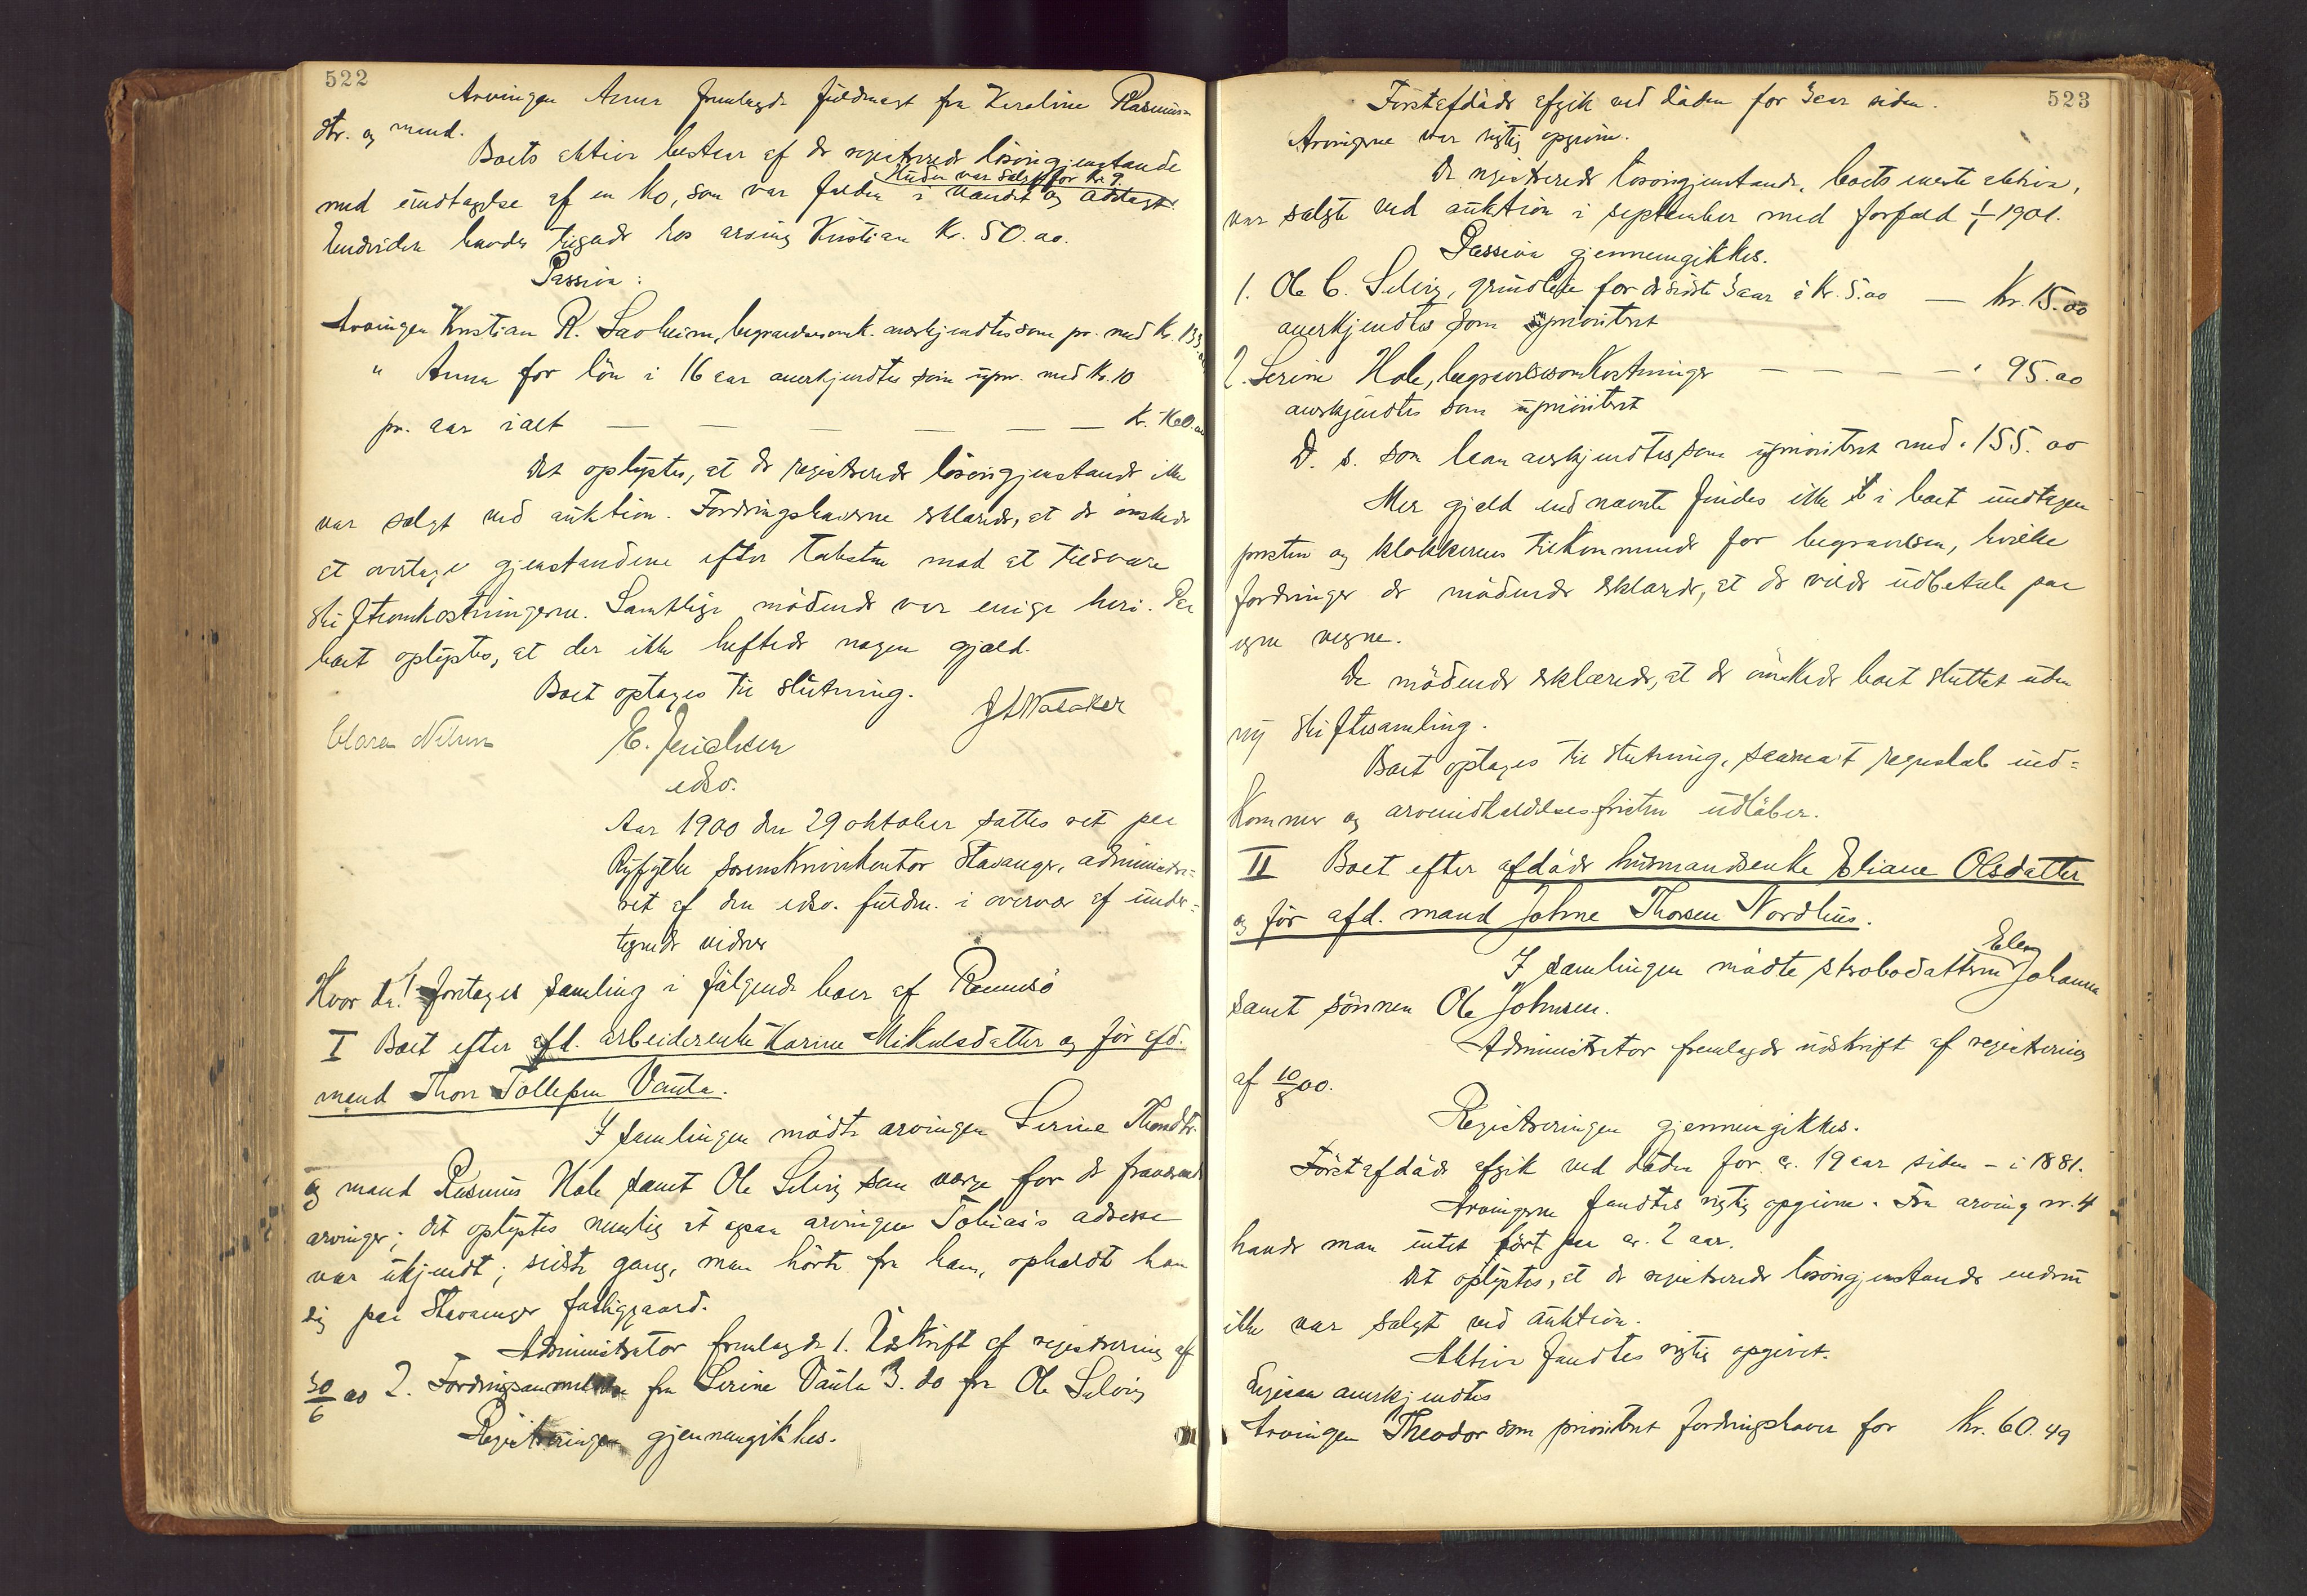 522
Arvingen Anna fremlagde fuldmagt fra Karoline Rasmus-
dtr. og mand.
Boets aktiva bestaar af de registrerede løsøregjenstande
Huden var solgt for kr. 9.
med undtagelse af en ko, som var falden i vandet og
Endvidere havdes tilgode hos arving Kristian kr. 50.00.
Passiva:
Arvingen Kristian R. begravelsesomk. anerkjendtes som pr. med kr.
" Anna for løn i 16 aar anerkjendtes som upr. med kr. 10
pr. aar ialt — — — — — — kr. 160.00
Det oplystes, at de registrerede løsøregjenstande ikke
var solgt ved auktion. Fordringshaverne erklærede, at de ønskede
at overtage gjenstandene efter taksten mod at tilsvare
skifteomkostningerne. Samtlige mødende var enige heri. Paa
boet oplystes, at der ikke heftede nogen gjæld.
Boet optages til slutning.
Clara Nilsen
E. Jerichsen
edsv.
Aar 1900 den 29 oktober sattes ret paa
Ryfylke sorenskriverkontor Stavanger, administre-
ret af den edsv. fuldm. i overvær af under-
tegnede vidner
Hvor da foretages samling i følgende boer af Rennesø
I Boet efter afd. arbeiderenke Karine Mikalsdatter og før afd.
mand Thore Tollefsen Vaula.
I samlingen mødte arvingen Serine Thoresdtr.
og mand Rasmus Hole samt Ole Selvig som værge for de fraværende
arvinger; det oplystes nemlig at arvingen Tobias's adresse
var ukjendt; sidste gang, man hørte fra ham, opholdt han
sig paa Stavanger fattiggaard.
Administrator fremlagde 1. Udskrift af registrering af
30/6 00 2. Fordringsanmeldelse fra Serine Vaula 3. do fra Ole Selvig
Registreringen gjennemgikkes.
523
Førstafdøde afgik ved døden for 3 aar siden.
Arvingerne var rigtig opgivne.
De registrerede løsøregjenstande, boets eneste aktiva,
var solgte ved auktion i september med forfald 1901.
Passiva gjennemgikkes.
1. Ole C. Selvig, grundleie for de sidste 3 aar à kr. 5.00 — kr. 15.00
anerkjendtes som uprioritert
2. Serine Hole, begravelsesomkostninger — — — — " 95.00
anerkjendtes som uprioritert
D. s. som laan anerkjendtes som uprioritert med " 155.00
Mer gjæld end nævnte findes ikke i boet undtagen
prestens og klokkerens tilkommende for begravelsen, hvilke
fordringer de mødende erklærede, at de vilde udbetale paa
egne vegne.
De mødende erklærede, at de ønskede boet sluttet uden
ny skiftesamling.
Boet optages til slutning, saasnart regnskab ind-
kommer og arvemeldelsesfristen udløber.
II Boet efter afdøde husmandsenke Eliane Olsdatter
og før afd. mand Johne Thorsen Nordhus.
I samlingen mødte datteren Elen Johanna
samt sønnen Ole Johnsen.
Administrator fremlagde udskrift af registrering
af 10/8 00.
Registreringen gjennemgikkes.
Førstafdøde afgik ved døden for ca. 19 aar siden – i 1881.
Arvingerne fandtes rigtig opgivne. Fra arving nr. 4
havde man intet hørt paa ca. 2 aar.
Det oplystes, at de registrerede løsøregjenstande endnu
ikke var solgt ved auktion.
Aktiva fandtes rigtig opgivet.
Ligesaa anerkjendtes
Arvingen Theodor som prioritert fordringshaver for kr. 60.49